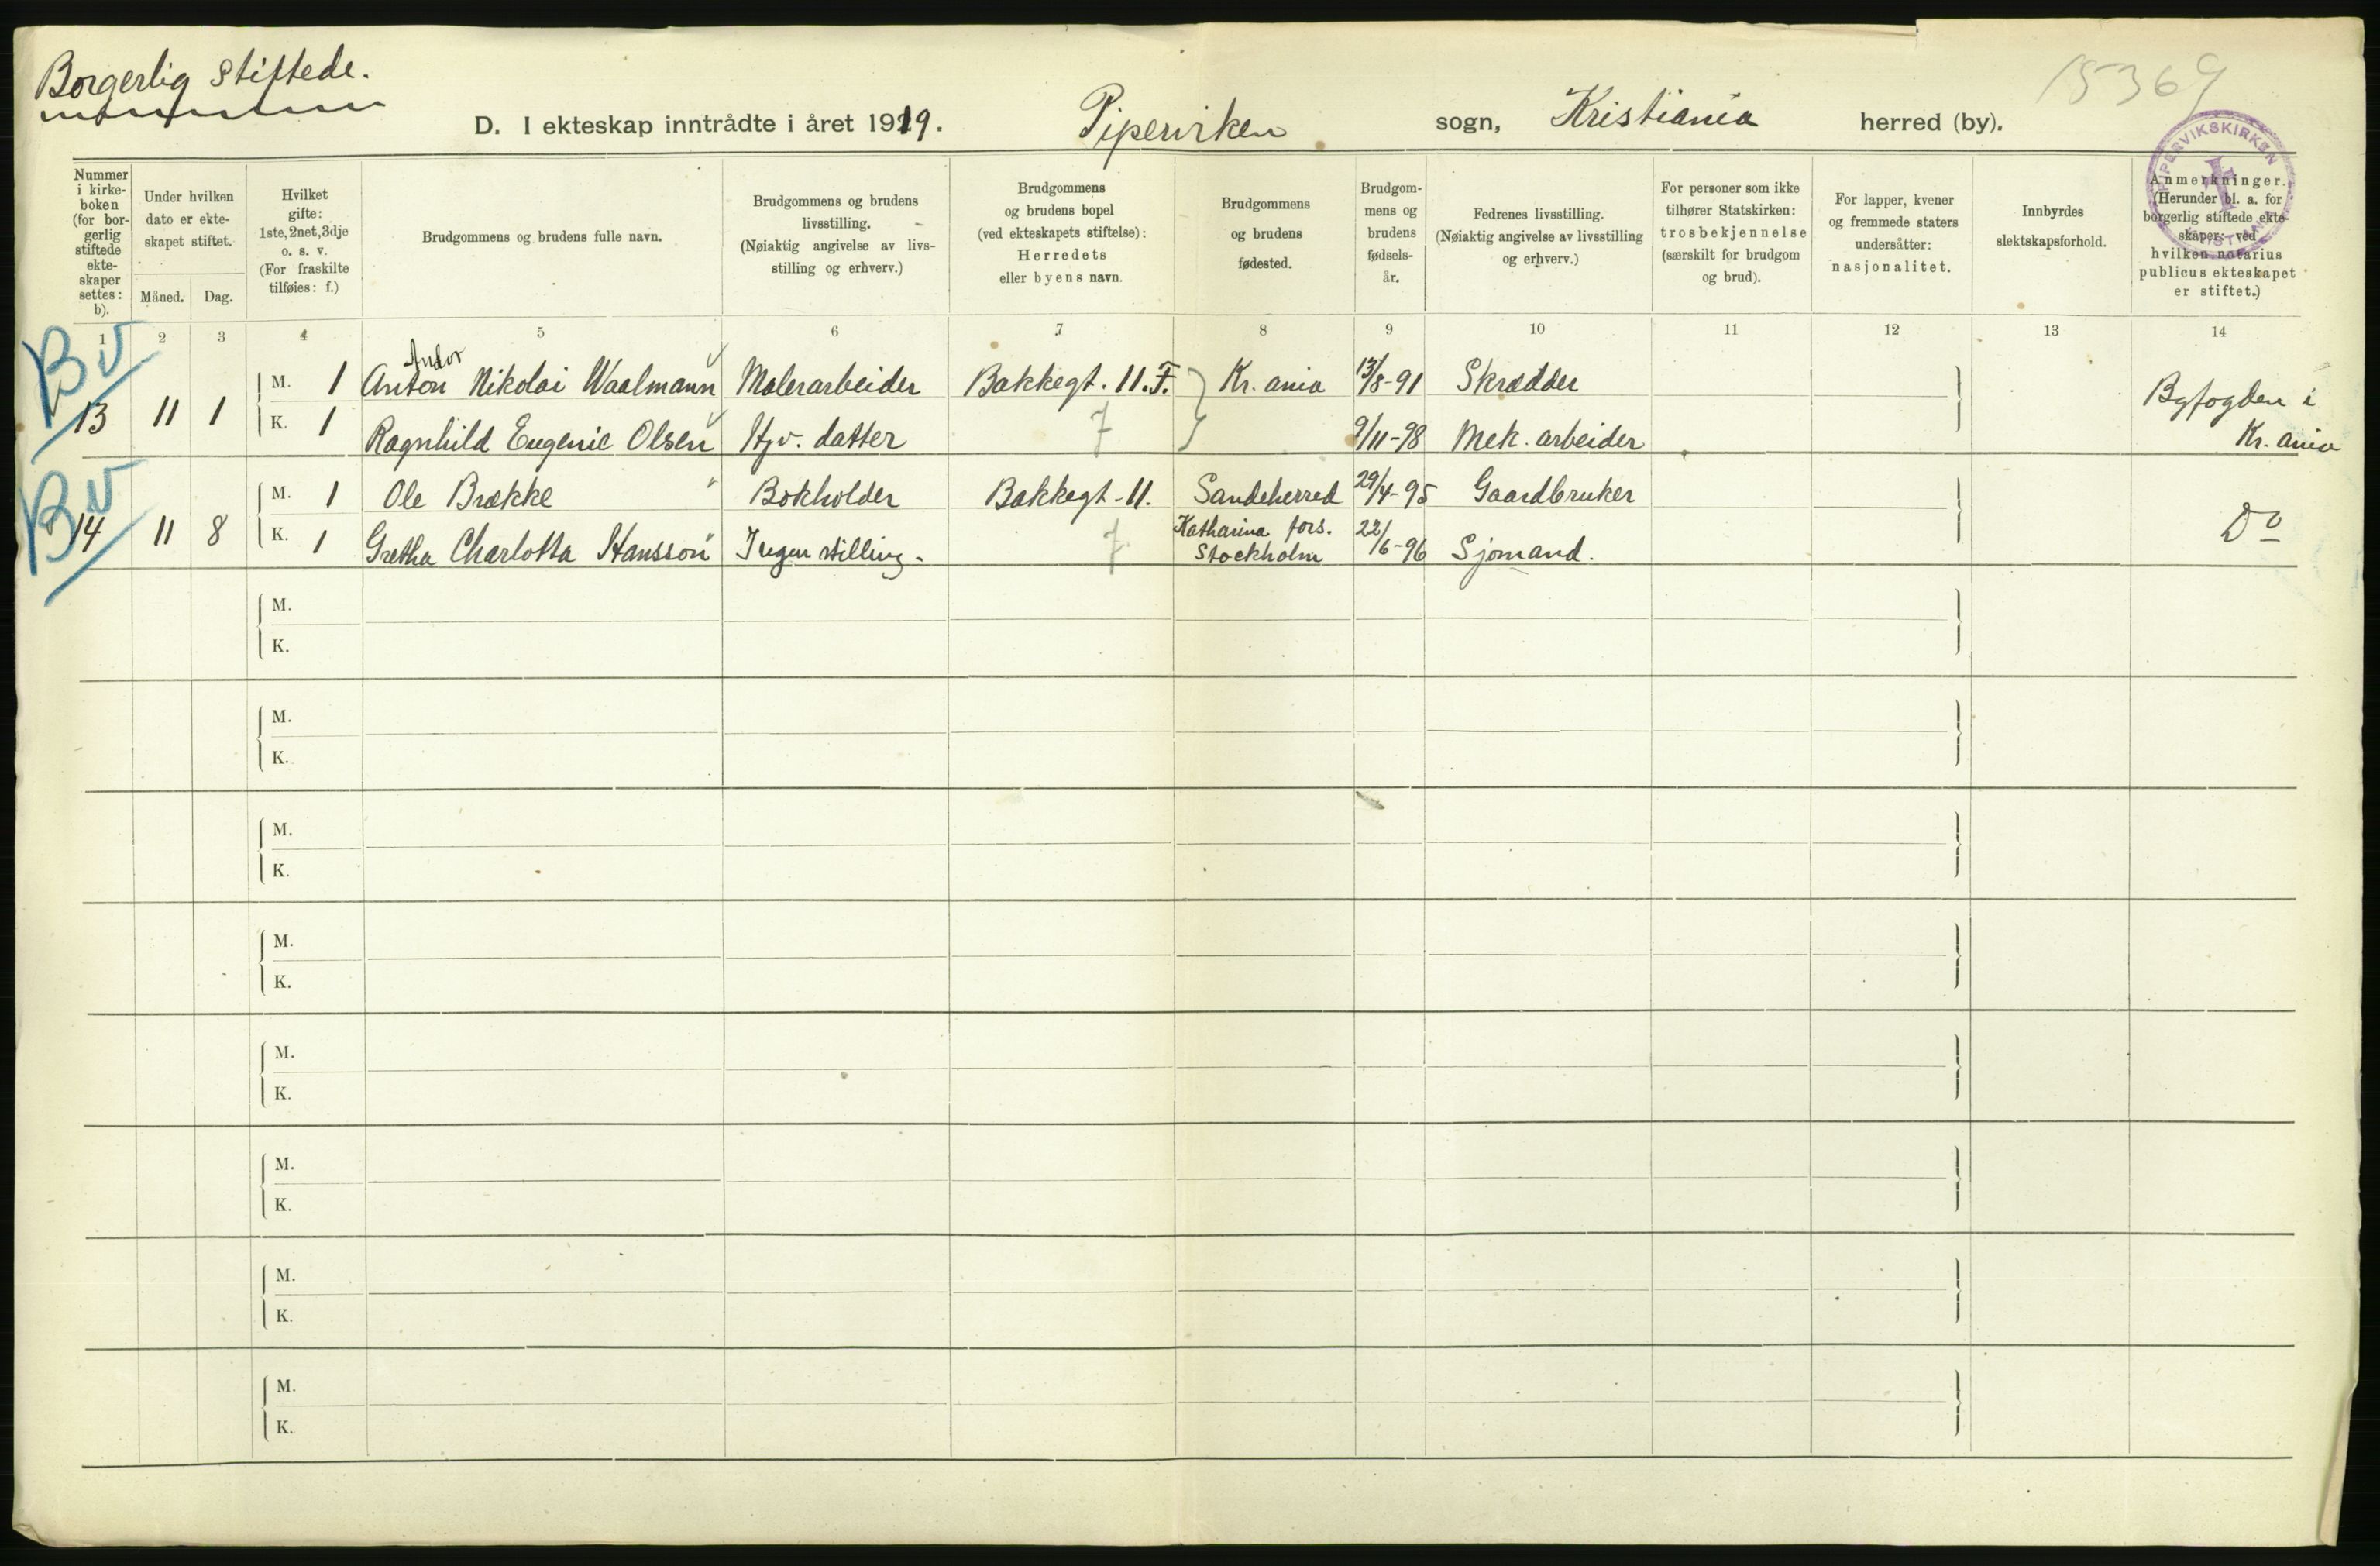 Borgerlig stiftede.
15369
D. I ekteskap inntrådte i året 1919. Pipervirken sogn, Kristiania herred (by).
PIPERVIKSKIRKEN
Nummer i kirke- boken (for bor- gerlig stiftede ekte- skaper settes: b).
Under hvilken dato er ekte- skapet stiftet.
Måned. Dag.
Hvilket gifte: 1ste, 2net, 3dje o. s. v. (For fraskilte tilføies: f.)
Brudgommens og brudens fulle navn.
Brudgommens og brudens livsstilling. (Nøiaktig angivelse av livs- stilling og erhverv.)
Brudgommens og brudens bopel (ved ekteskapets stiftelse): Herredets eller byens navn.
Brudgommens og brudens fødested.
Brudgom- mens og brudens fødsels- år.
Fedrenes livsstilling. (Nøiaktig angivelse av livsstilling og erhverv.)
For personer som ikke tilhører Statskirken: trosbekjennelse (særskilt for brudgom og brud).
For lapper, kvener og fremmede staters undersåtter: nasjonalitet.
Innbyrdes slektskapsforhold.
Anmerkninger. (Herunder bl. a. for borgerlig stiftede ekte- skaper: ved hvilken notarius publicus ekteskapet er stiftet.)
1 2 3 4 5 6 7 8 9 10 11 12 13 14
Bv
Andor
13 11 1 M. 1 Anton Nikolai Waalmann Malerarbeider Bakkegt. 11. F. Kr. ania 13/8-91 Skrædder Byfogden i
K. 1 Ragnhild Eugenie Olsen Hjv. datter 7 9/11-98 Mek. arbeider Kr. ania
Bv
14 11 8 M. 1 Ole Brække Bokholder Bakkegt. 11. Sandeherred 29/4-95 Gaardbruker Do
Katharina fors.
K. 1 Gretha Charlotta Hansson Ingen stilling. 7 Stockholm 22/6-96 Sjømand.
M.
K.
M.
K.
M.
K.
M.
K.
M.
K.
M.
K.
M.
K.
M.
K.